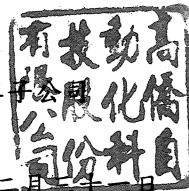 高僑自
動化科
技股份
有限公司
子公司